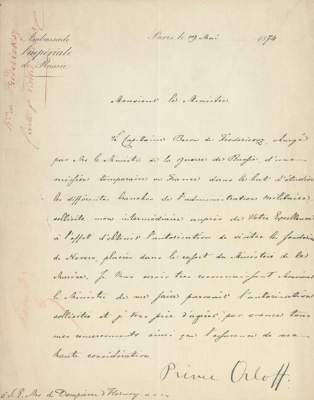 Ambassade
Impériale
de Russie
Paris le 19 Mai 1874
Monsieur le Ministre
Le Capitaine Baron de Fredericksz, chargé
par Mr le Ministre de la guerre de Russie d'une
mission temporaire en France dans le but d'étudier
les différentes branches de l'administration militaire,
sollicite mon intermédiaire auprès de Votre Excellence
à l'effet d'obtenir l'autorisation de visiter la fonderie
de Nevers placée dans le ressort du Ministère de la
Marine. Je Vous serais très reconnaissant Monsieur
le Ministre de me faire parvenir l'autorisation
sollicitée et je Vous prie d'agréer par avance tous
mes remerciements ainsi que l'assurance de ma
haute considération.
Prince Orloff.
à S. E. Mr de Dompierre d'Hornoy